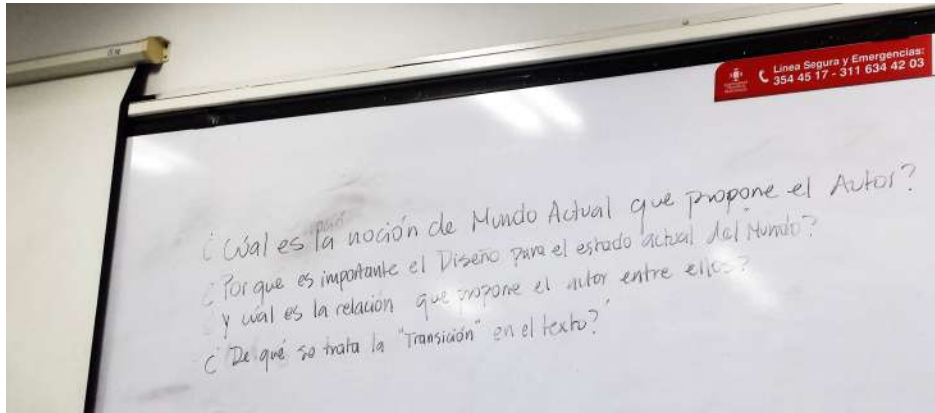 Línea Segura y Emergencias:
354 45 17 - 311 634 42 03
¿Cúal es la noción de Mundo Actual que propone el Autor?
¿Por que es importante el Diseño para el estado actual del Mundo?
y cúal es la relación que propone el autor entre ellos?
¿De qué se trata la "Transición" en el texto?